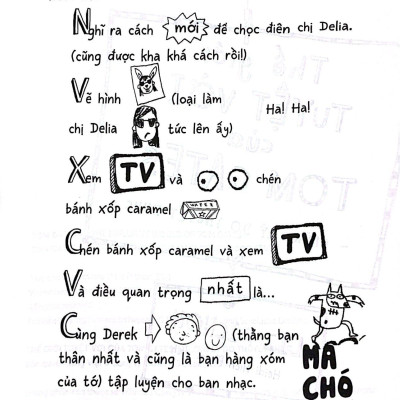 Nghĩ ra cách mới để chọc điên chị Delia.
(cũng được kha khá cách rồi!)
Vẽ hình (loại làm
Ha! Ha!
chị Delia tức lên ấy)
Xem TV và chén
bánh xốp caramel WAFER
Chén bánh xốp caramel và xem TV
Và điều quan trọng nhất là...
Cùng Derek (thằng bạn
thân nhất và cũng là bạn hàng xóm
của tớ) tập luyện cho ban nhạc.
MA
CHÓ